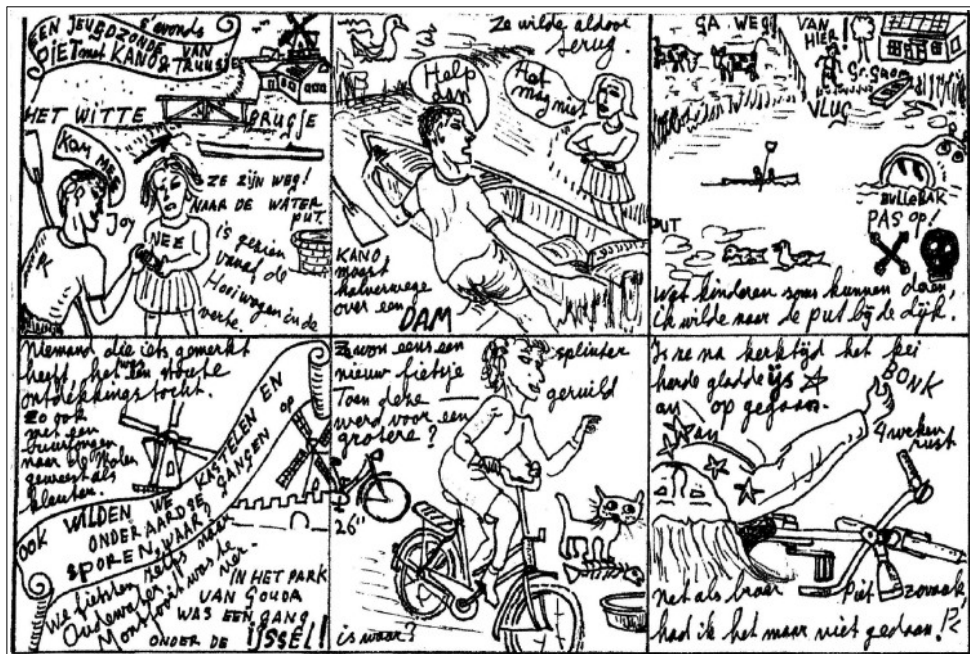 EEN JEUGDZONDE VAN
PIET met KANO & TRUUSJE
's avonds
HET WITTE BRUGJE
Kay MEE
Joy
NEE
ZE ZIJN WEG!
NAAR DE WATER
PUT.
is gezien
vanaf de
Hooiwagen in de
verte.
Ze wilde aldoor
terug.
Help
dan
Het
mag niet
KANO
moest
halverwege
over een
DAM
GA WEG! VAN
HIER!
VLUG
PUT
BULLEBAK
PAS OP!
Wat kinderen soms kunnen deren,
ik wilde naar de put bij de dijk.
Niemand die iets gemerkt
heeft, het was een stoute
ontdekkingstocht.
Zo ook
met een
buurjongen
naar de Molen
geweest als
kleuter.
OOK WILDEN WE KASTELEN EN
ONDERAARDSE GANGEN OP
SPOREN, WAAR?
We fietsten zelfs naar
Oudewater,
Montfoort was te
ver.
IN HET PARK
VAN GOUDA
WAS EEN GANG
ONDER DE IJSSEL!
Zo won eens een
nieuw fietsje
Toen deze
werd voor een
grotere?
splinter
geruild
26"
is waar?
Is ze na kerktijd het kei
harde gladde ijs
op gegaan.
au
au
BONK
4 weken
rust
net als broer Piet zo vaak,
had ik het maar niet gedaan!